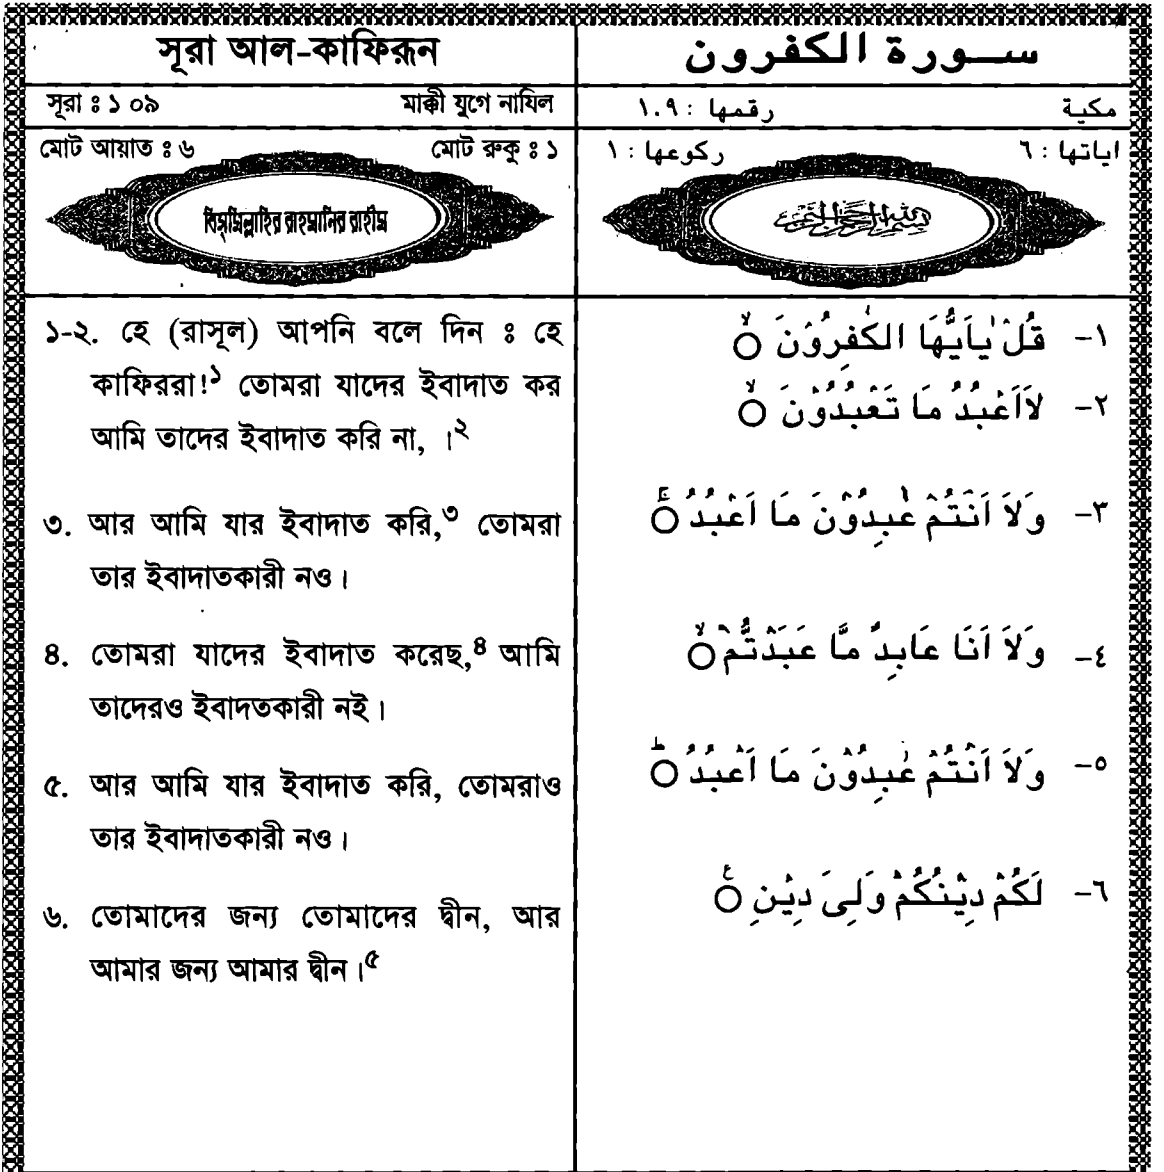 সূরা আল-কাফিরূন
সূরা ঃ ১০৯ মাক্কী যুগে নাযিল
মোট আয়াত ঃ ৬ মোট রুকু ঃ ১
বিসমিল্লাহির রাহমানির রাহীম
১-২. হে (রাসূল) আপনি বলে দিন ঃ হে
কাফিররা!১ তোমরা যাদের ইবাদাত কর
আমি তাদের ইবাদাত করি না, ।২
৩. আর আমি যার ইবাদাত করি,৩ তোমরা
তার ইবাদাতকারী নও।
৪. তোমরা যাদের ইবাদাত করেছ,৪ আমি
তাদেরও ইবাদতকারী নই।
৫. আর আমি যার ইবাদাত করি, তোমরাও
তার ইবাদাতকারী নও।
৬. তোমাদের জন্য তোমাদের দ্বীন, আর
আমার জন্য আমার দ্বীন।৫
سورة الكفرون
مكية رقمها : ١٠٩
اياتها : ٦ ركوعها : ١
بِسْمِ اللهِ الرَّحْمٰنِ الرَّحِيْمِ
١- قُلْ يٰاَيُّهَا الْكٰفِرُوْنَ ۙ
٢- لَااَعْبُدُ مَا تَعْبُدُوْنَ ۙ
٣- وَلَا اَنْتُمْ عٰبِدُوْنَ مَا اَعْبُدُ ۚ
٤- وَلَا اَنَا عَابِدٌ مَّا عَبَدْتُّمْ ۙ
٥- وَلَا اَنْتُمْ عٰبِدُوْنَ مَا اَعْبُدُ ؕ
٦- لَكُمْ دِيْنُكُمْ وَلِىَ دِيْنِ ۧ